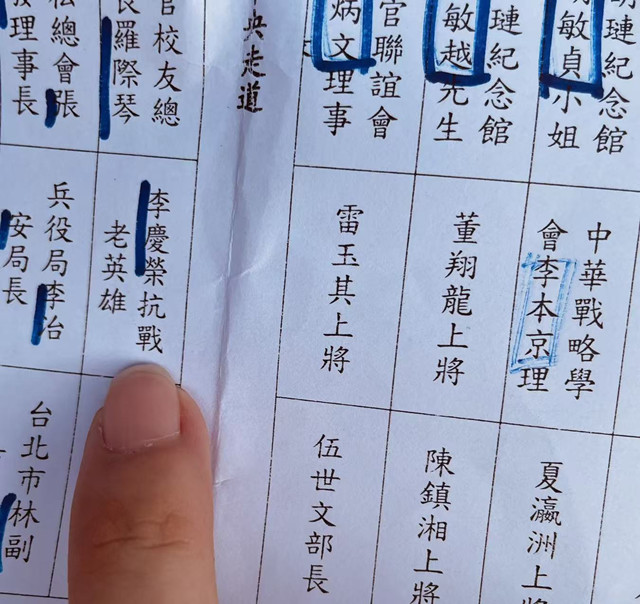 璉紀念館
敏貞小姐
璉紀念館
敏越先生
官聯誼會
炳文理事
央走道
官校友總
長羅際琴
總會張
理事長
中華戰略學
會李本京理
董翔龍上將
雷玉其上將
李慶榮抗戰
老英雄
兵役局李冶
安局長
夏瀛洲上
陳鎮湘上將
伍世文部長
台北市林副